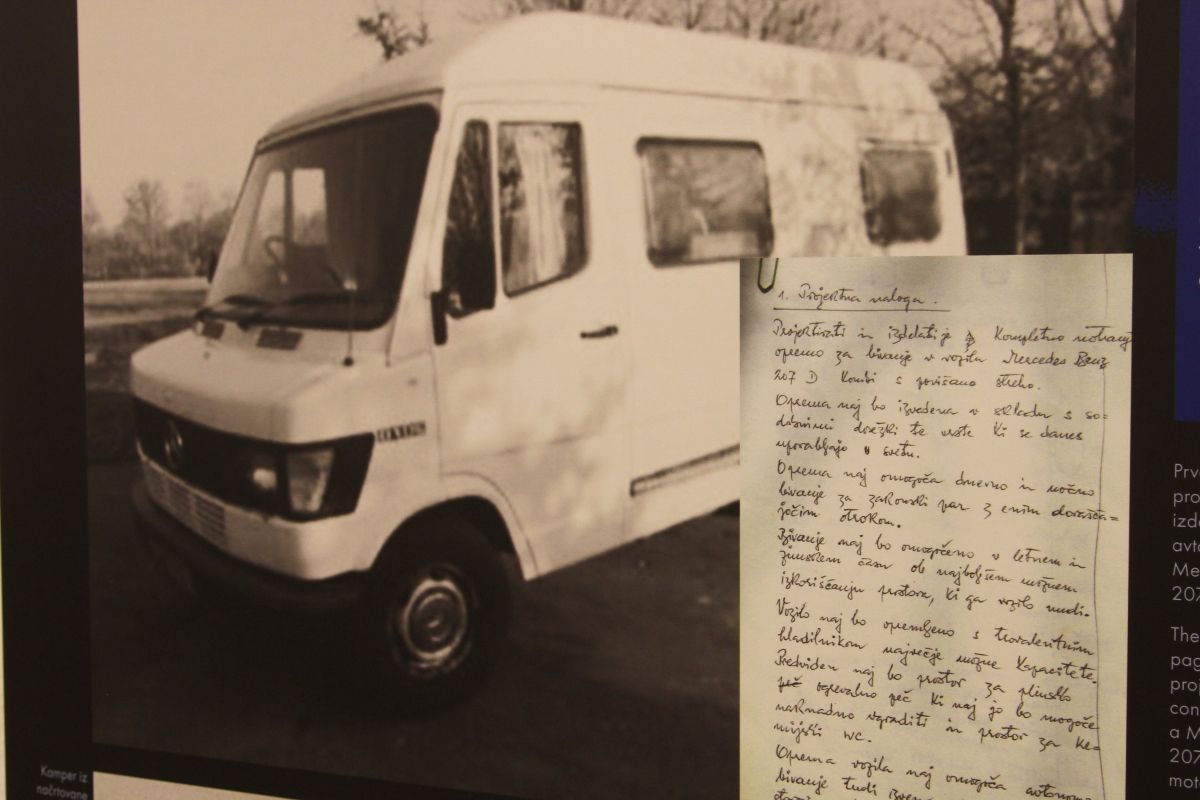 1. Projektna naloga.
Projektirati in izdelati je kompletno notranjo
opremo za bivanje v vozilu Mercedes Benz
207 D Kombi s povišano streho.
Oprema naj bo izvedena v skladu s so=
dobnimi dosežki te vrste ki se danes
uporabljajo v svetu.
Oprema naj omogoča dnevno in nočno
bivanje za zakonski par z enim dorašča=
jočim otrokom.
Bivanje naj bo omogočeno v letnem in
zimskem času ob najboljšem možnem
izkoriščanju prostora, ki ga vozilo nudi.
Vozilo naj bo opremljeno s trovalentnim
hladilnikom največje možne kapacitete.
Predviden naj bo prostor za plinsko
peč ogrevalno peč ki naj jo bo mogoče
naknadno vgraditi in prostor za ke=
mijski WC.
Oprema vozila naj omogoča avtonomno
bivanje tudi izven
Kamper iz
načrtovane
Prv
pro
izd
avto
Me
207
The
pag
proj
con
a M
207
moto